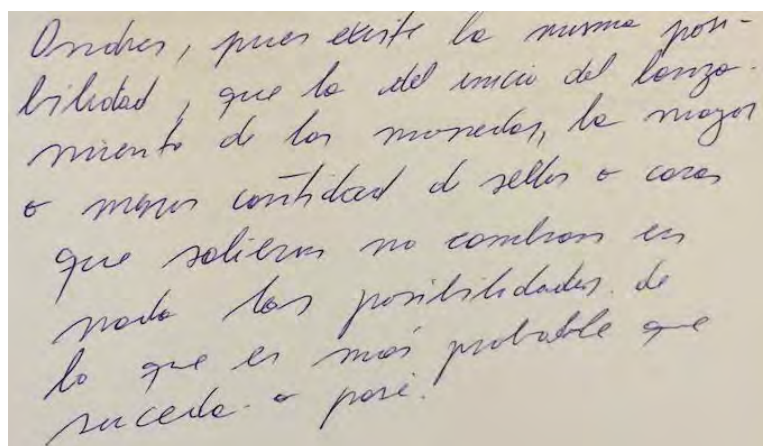 Andres, pues existe la misma posi-
bilidad, que la del inicio del lanza-
miento de las monedas, la mayor
o menor cantidad de sellos o caras
que salieron no cambian en
nada las posibilidades de
lo que es más probable que
suceda o pase.